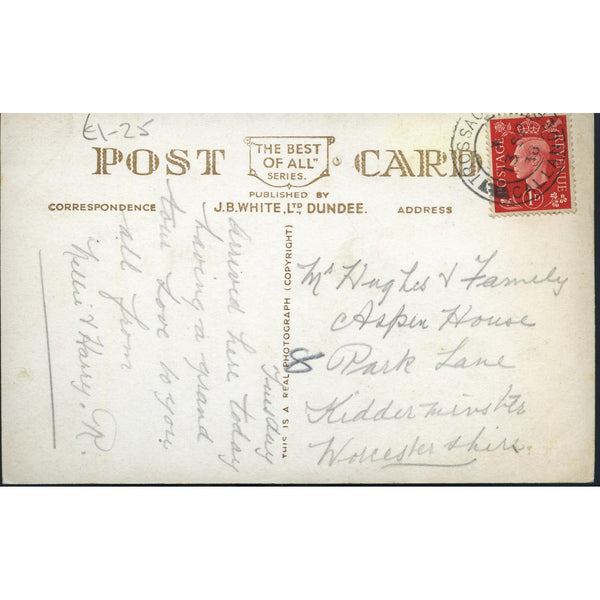 £1-25
POST CARD
"THE BEST
OF ALL"
SERIES.
PUBLISHED BY
J.B.WHITE, LTD. DUNDEE.
CORRESPONDENCE
ADDRESS
THIS IS A REAL PHOTOGRAPH (COPYRIGHT)
Tuesday
Arrived here today
having a grand
tour Love to you
all from
Nellie & Harry.
Mrs Hughes & Family
Aspen House
Park Lane
Kidderminster
Worcestershire.
POSTAGE
REVENUE
1D